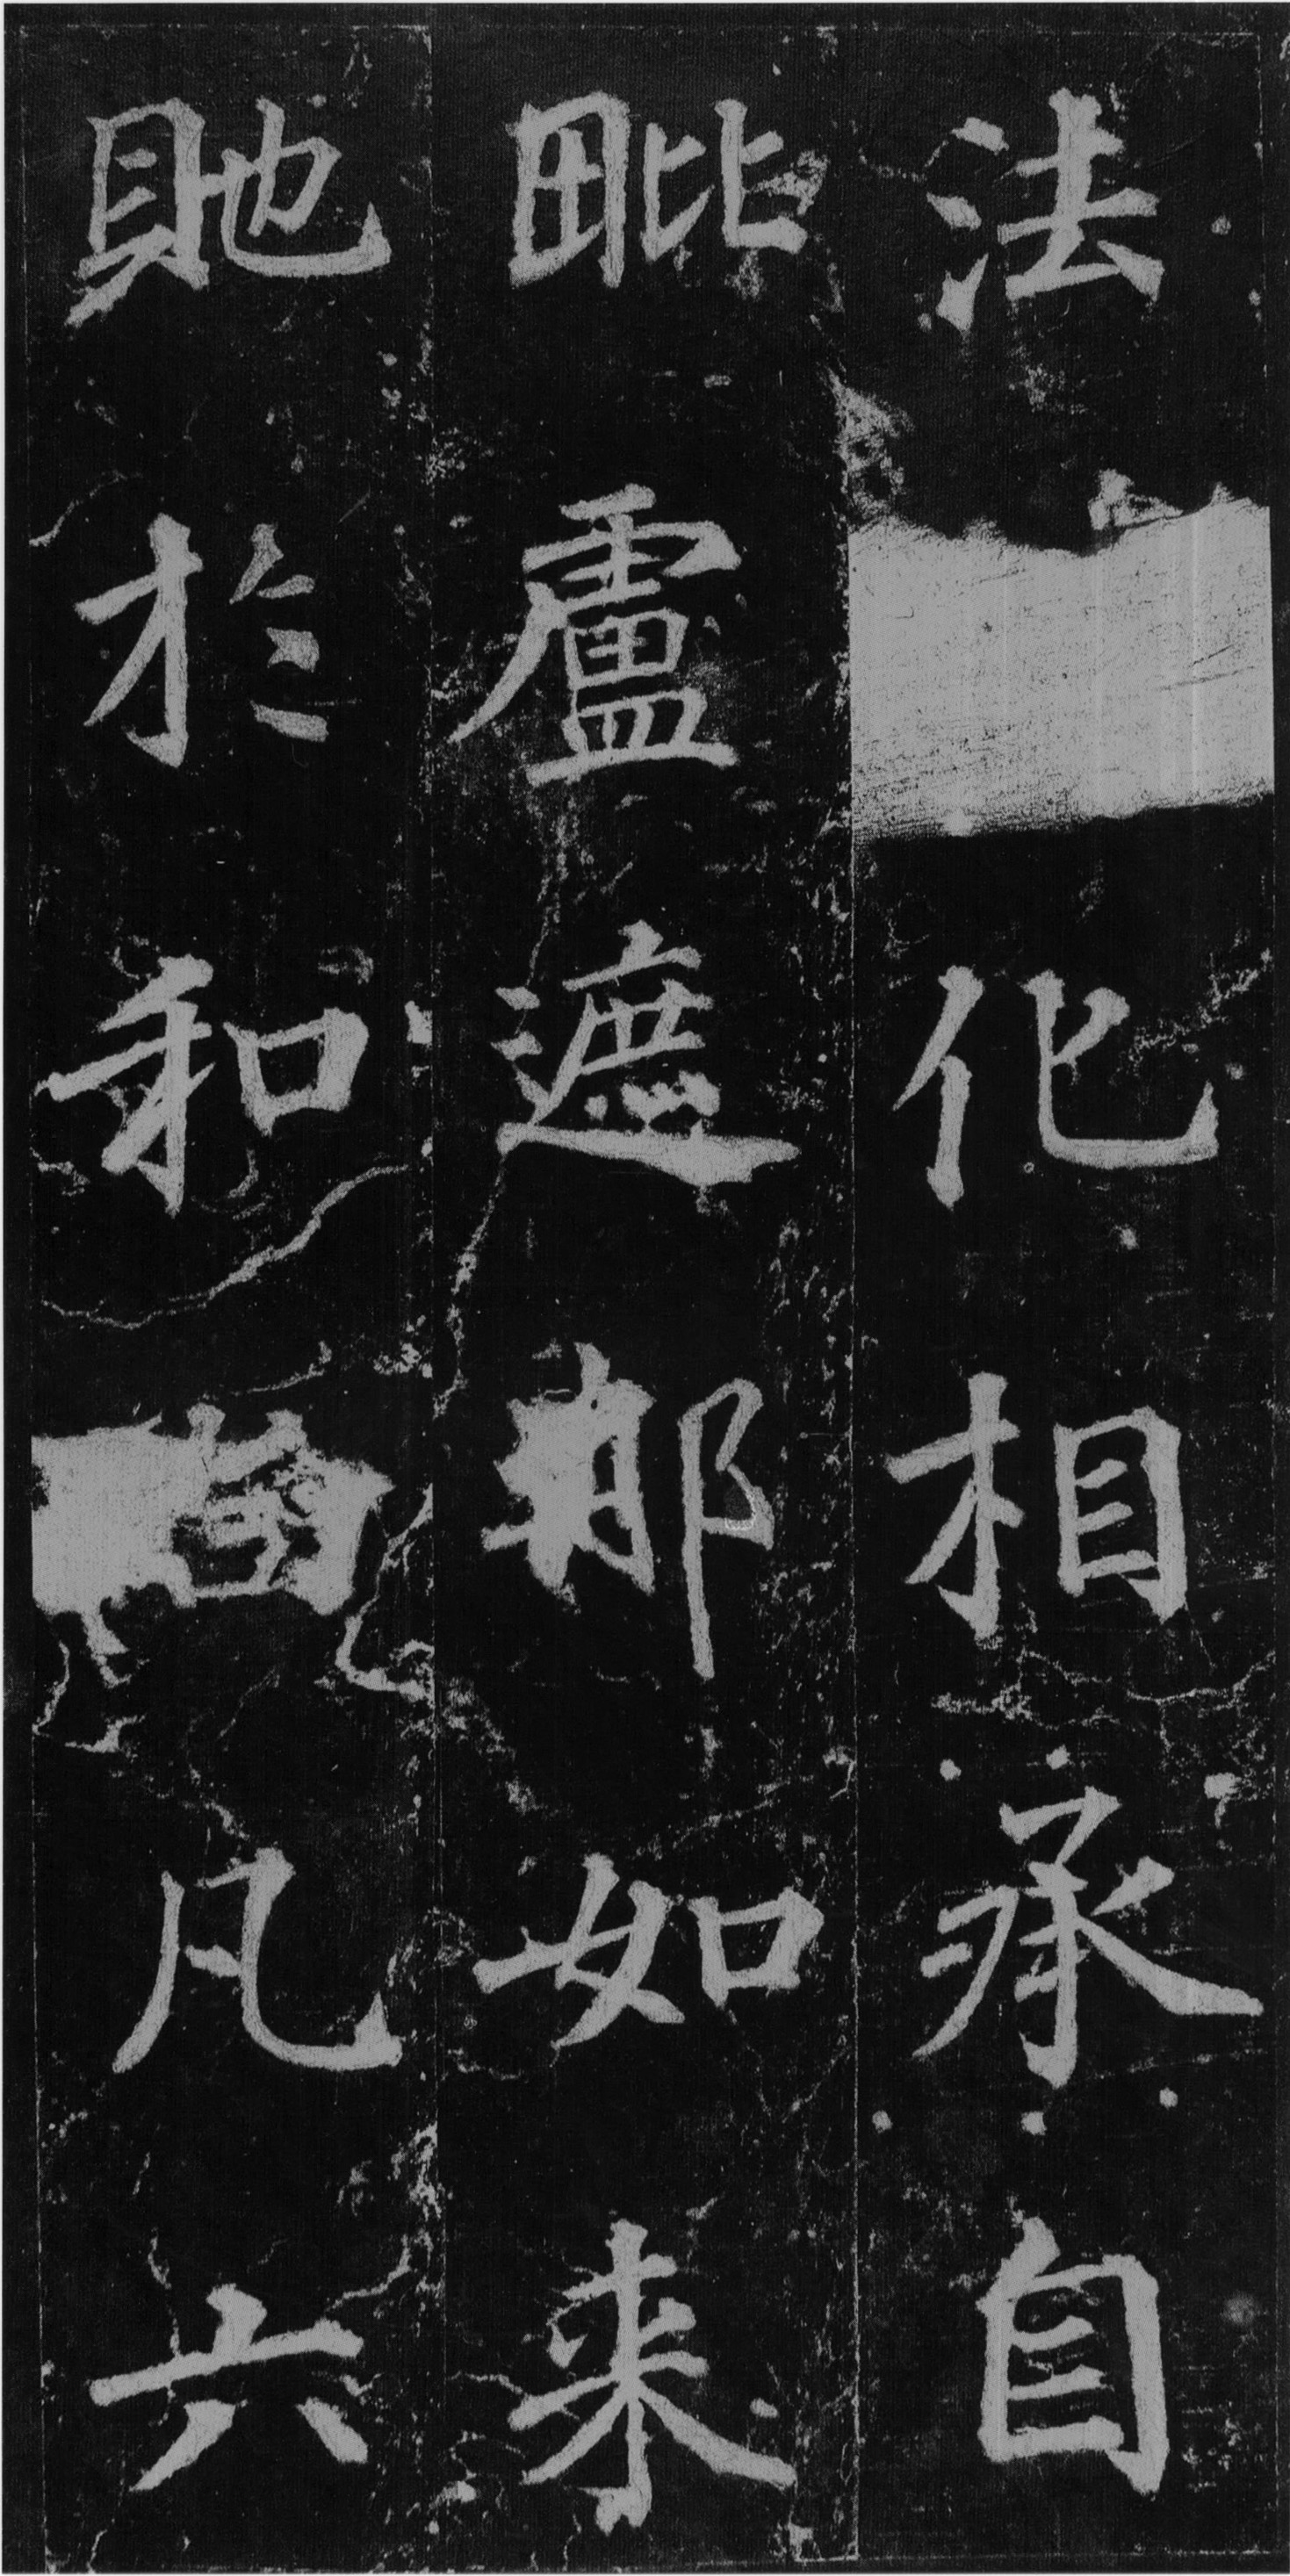 法化相承自
毗盧遮那如来
貤於和尚凡六